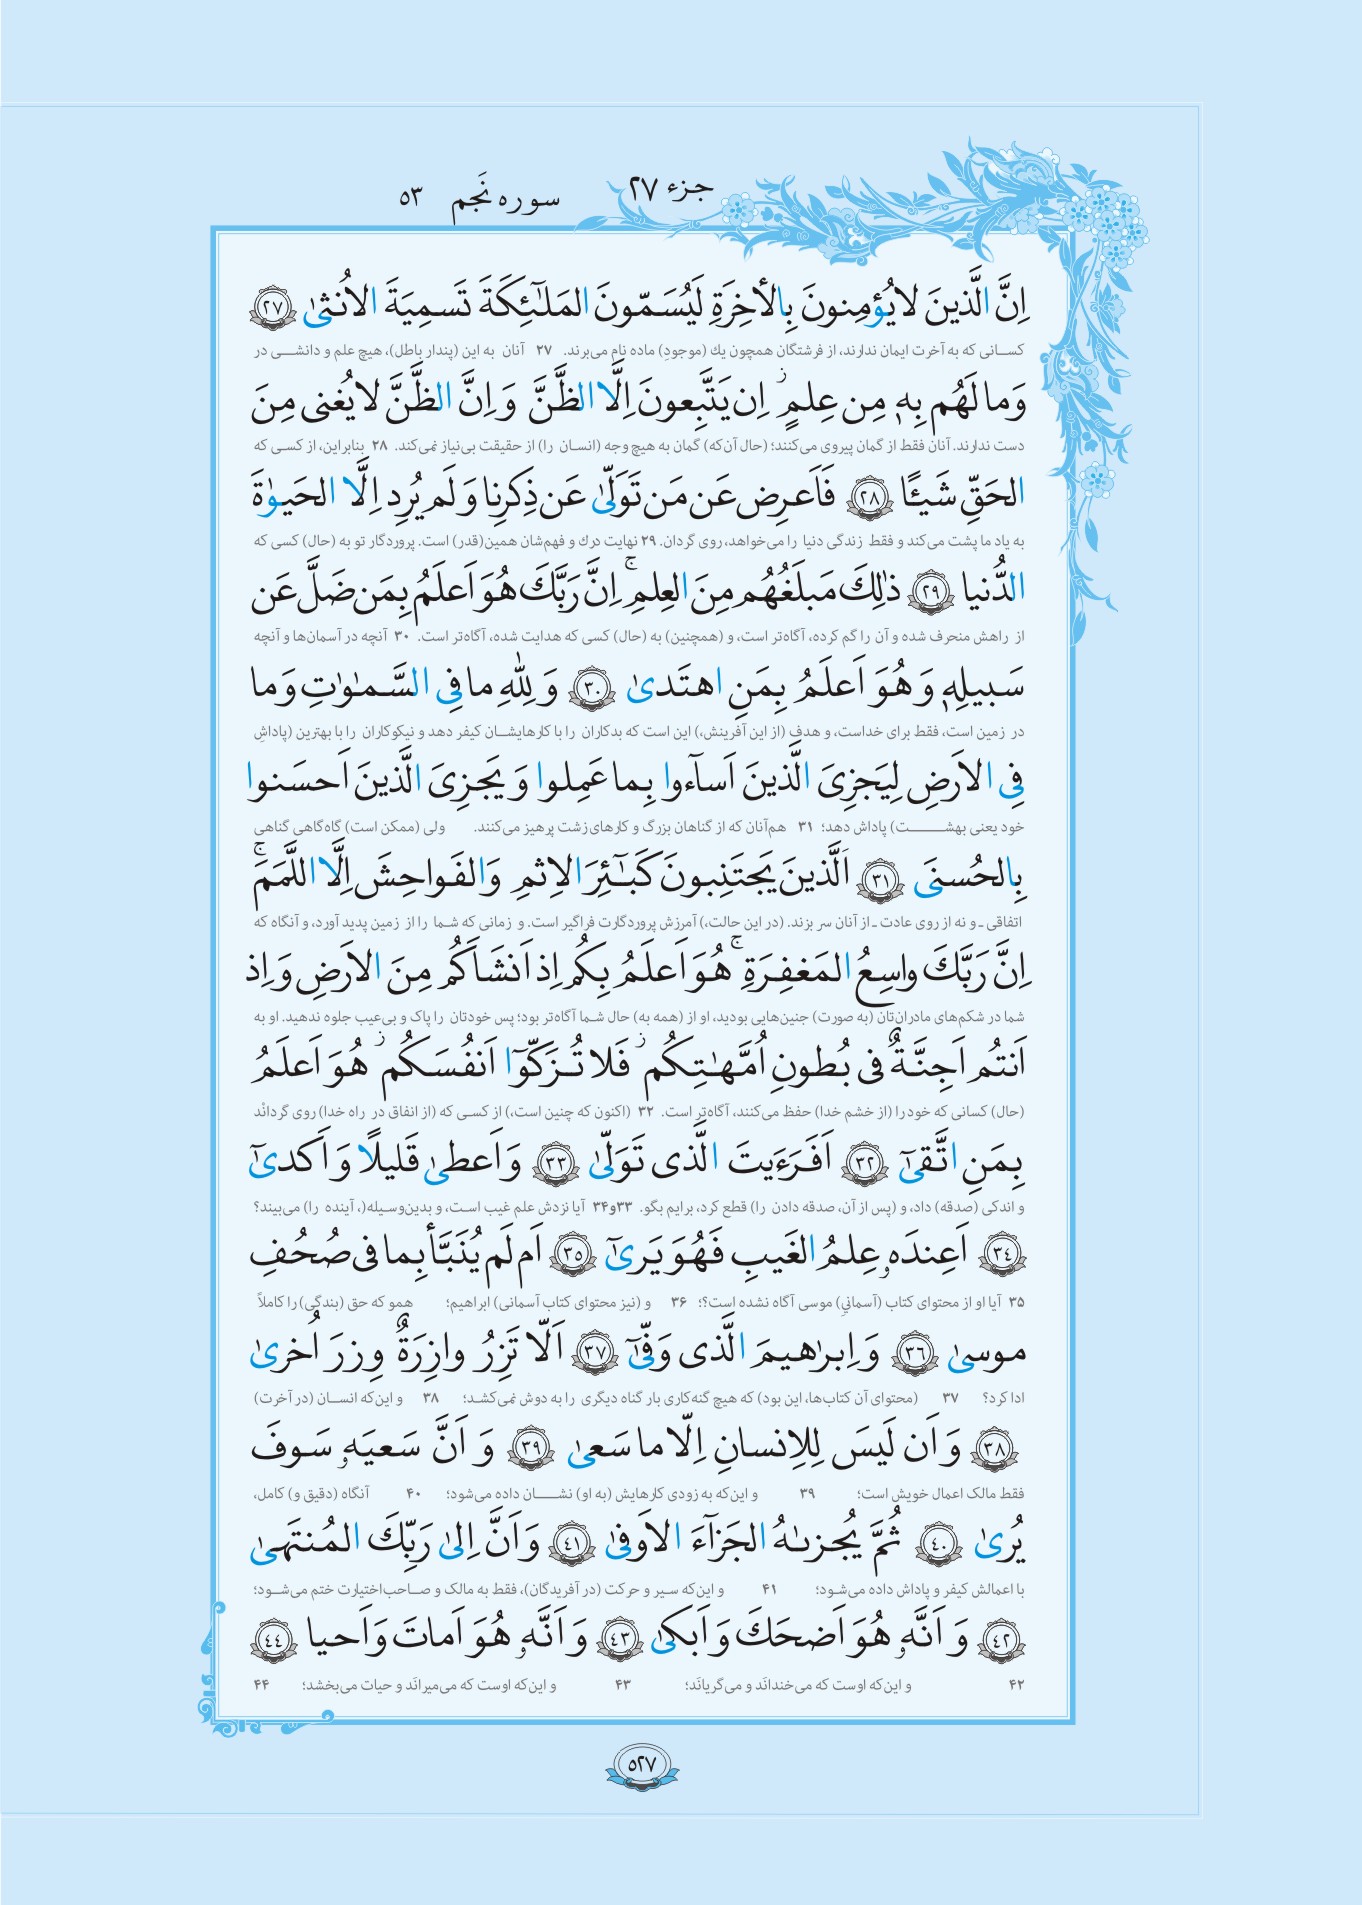 جزء ۲۷
سوره نَجم ۵۳
اِنَّ الَّذينَ لايُؤمِنونَ بِالأخِرَةِ لَيُسَمّونَ المَلٰٓئِكَةَ تَسمِيَةَ الاُنثىٰ ﴿٢٧﴾
کسـانی که به آخرت ایمان ندارند، از فرشتگان همچون یك (موجودِ) ماده نام می‌برند. ۲۷ آنان به این (پندار باطل)، هیچ علم و دانشـی در
وَما لَهُم بِهٖ مِن عِلمٍ ۖ اِن يَتَّبِعونَ اِلَّا الظَّنَّ وَاِنَّ الظَّنَّ لايُغنى مِنَ
دست ندارند. آنان فقط از گمان پیروی می‌کنند؛ (حال آن‌که) گمان به هیچ وجه (انسان را) از حقیقت بی‌نیاز نمی‌کند. ۲۸ بنابراین، از کسی که
الحَقِّ شَيـًٔا ﴿٢٨﴾ فَاَعرِض عَن مَن تَوَلّىٰ عَن ذِكرِنا وَلَم يُرِد اِلَّا الحَيوٰةَ
به یاد ما پشت می‌کند و فقط زندگی دنیا را می‌خواهد، روی گردان. ۲۹ نهایت درك و فهم‌شان همین(قدر) است. پروردگار تو به (حال) کسی که
الدُّنيا ﴿٢٩﴾ ذٰلِكَ مَبلَغُهُم مِنَ العِلمِ ۚ اِنَّ رَبَّكَ هُوَ اَعلَمُ بِمَن ضَلَّ عَن
از راهش منحرف شده و آن را گم کرده، آگاه‌تر است، و (همچنین) به (حال) کسی که هدایت شده، آگاه‌تر است. ۳۰ آنچه در آسمان‌ها و آنچه
سَبيلِهٖ وَهُوَ اَعلَمُ بِمَنِ اهتَدىٰ ﴿٣٠﴾ وَلِلّٰهِ ما فِى السَّمٰوٰتِ وَما
در زمین است، فقط برای خداست، و هدفِ (از این آفرینش،) این است که بدکاران را با کارهایشـان کیفر دهد و نیکوکاران را با بهترین (پاداشِ
فِى الاَرضِ لِيَجزِىَ الَّذينَ اَسآءوا بِما عَمِلوا وَيَجزِىَ الَّذينَ اَحسَنوا
خود یعنی بهشـت) پاداش دهد؛ ۳۱ هم‌آنان که از گناهان بزرگ و کارهای زشت پرهیز می‌کنند. ولی (ممکن است) گاه‌گاهی گناهی
بِالحُسنَى ﴿٣١﴾ اَلَّذينَ يَجتَنِبونَ كَبٰٓئِرَ الاِثمِ وَالفَواحِشَ اِلَّا اللَّمَمَ ۚ
اتفاقی ـ و نه از روی عادت ـ از آنان سر بزند. (در این حالت،) آمرزش پروردگارت فراگیر است. و زمانی که شما را از زمین پدید آورد، و آنگاه که
اِنَّ رَبَّكَ واسِعُ المَغفِرَةِ ۚ هُوَ اَعلَمُ بِكُم اِذ اَنشَاَكُم مِنَ الاَرضِ وَاِذ
شما در شکم‌های مادران‌تان (به صورت) جنین‌هایی بودید، او از (همه به) حال شما آگاه‌تر بود؛ پس خودتان را پاک و بی‌عیب جلوه ندهید. او به
اَنتُم اَجِنَّةٌ فى بُطونِ اُمَّهٰتِكُم ۖ فَلا تُزَكّوٓا اَنفُسَكُم ۖ هُوَ اَعلَمُ
(حال) کسانی که خود را (از خشم خدا) حفظ می‌کنند، آگاه‌تر است. ۳۲ (اکنون که چنین است،) از کسـی که (از انفاق در راه خدا) روی گرداند
بِمَنِ اتَّقىٰٓ ﴿٣٢﴾ اَفَرَءَيتَ الَّذى تَوَلّىٰ ﴿٣٣﴾ وَاَعطىٰ قَليلًا وَاَكدىٰٓ
و اندکی (صدقه) داد، و (پس از آن، صدقه دادن را) قطع کرد، برایم بگو. ۳۳و۳۴ آیا نزدش علم غیب است، و بدین‌وسیله(، آینده را) می‌بیند؟
﴿٣٤﴾ اَعِندَهٗ عِلمُ الغَيبِ فَهُوَ يَرىٰٓ ﴿٣٥﴾ اَم لَم يُنَبَّأ بِما فى صُحُفِ
۳۵ آیا او از محتوای کتاب (آسمانیِ) موسی آگاه نشده است؟؛ ۳۶ و (نیز محتوای کتاب آسمانی) ابراهیم؛ همو که حق (بندگی) را کاملاً
موسىٰ ﴿٣٦﴾ وَاِبرٰهيمَ الَّذى وَفّىٰٓ ﴿٣٧﴾ اَلّا تَزِرُ وازِرَةٌ وِزرَ اُخرىٰ
ادا کرد؟ ۳۷ (محتوای آن کتاب‌ها، این بود) که هیچ گنه‌کاری بار گناه دیگری را به دوش نمی‌کشد؛ ۳۸ و این‌که انسـان (در آخرت)
﴿٣٨﴾ وَاَن لَيسَ لِلاِنسانِ اِلّا ما سَعىٰ ﴿٣٩﴾ وَاَنَّ سَعيَهٗ سَوفَ
فقط مالک اعمال خویش است؛ ۳۹ و این‌که به زودی کارهایش (به او) نشـان داده می‌شود؛ ۴۰ آنگاه (دقیق و) کامل،
يُرىٰ ﴿٤٠﴾ ثُمَّ يُجزٰىهُ الجَزآءَ الاَوفىٰ ﴿٤١﴾ وَاَنَّ اِلىٰ رَبِّكَ المُنتَهىٰ
با اعمالش کیفر و پاداش داده می‌شود؛ ۴۱ و این‌که سیر و حرکت (در آفریدگان)، فقط به مالک و صـاحب‌اختیارت ختم می‌شود؛
﴿٤٢﴾ وَاَنَّهٗ هُوَ اَضحَكَ وَاَبكىٰ ﴿٤٣﴾ وَاَنَّهٗ هُوَ اَماتَ وَاَحيا ﴿٤٤﴾
۴۲ و این‌که اوست که می‌خندانَد و می‌گریانَد؛ ۴۳ و این‌که اوست که می‌میرانَد و حیات می‌بخشد؛ ۴۴
۵۲۷